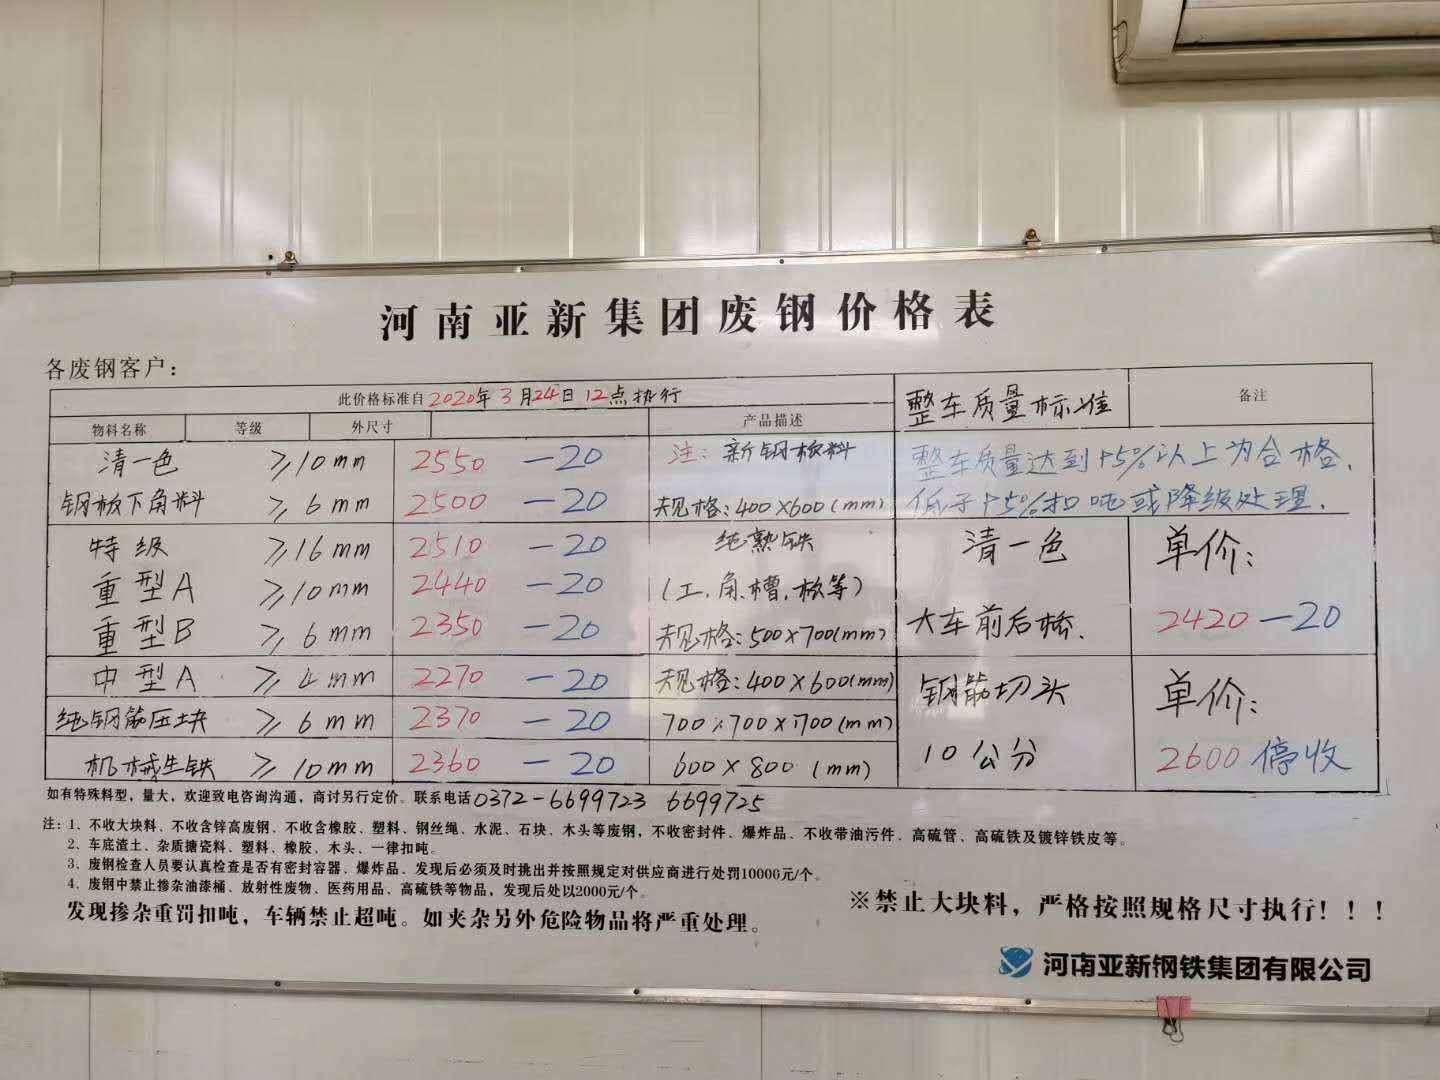 河南亚新集团废钢价格表
各废钢客户：
此价格标准自2020年3月24日12点执行 整车质量标准 备注
物料名称 等级 外尺寸 产品描述
清一色 ≥10mm 2550 －20 注：新钢板料
钢板下角料 ≥6mm 2500 －20 规格：400×600(mm)
整车质量达到95%以上为合格，
低于95%扣吨或降级处理．
特级 ≥16mm 2510 －20 纯熟铁
重型A ≥10mm 2440 －20 （工．角．槽．板等）
重型B ≥6mm 2350 －20 规格：500×700(mm)
清一色 单价：
大车前后桥． 2420－20
中型A ≥4mm 2270 －20 规格：400×600(mm)
纯钢筋压块 ≥6mm 2370 －20 700×700×700(mm)
机械生铁 ≥10mm 2360 －20 600×800 (mm)
钢筋切头 单价：
10公分 2600停收
如有特殊料型，量大，欢迎致电咨询沟通，商讨另行定价。联系电话0372-6699723 6699725
注：1、不收大块料、不收含锌高废钢、不收含橡胶、塑料、钢丝绳、水泥、石块、木头等废钢，不收密封件、爆炸品、不收带油污件、高硫管、高硫铁及镀锌铁皮等。
2、车底渣土、杂质搪瓷料、塑料、橡胶、木头、一律扣吨。
3、废钢检查人员要认真检查是否有密封容器、爆炸品、发现后必须及时挑出并按照规定对供应商进行处罚10000元/个。
4、废钢中禁止掺杂油漆桶、放射性废物、医药用品、高硫铁等物品，发现后处以2000元/个。
发现掺杂重罚扣吨，车辆禁止超吨。如夹杂另外危险物品将严重处理。
※禁止大块料，严格按照规格尺寸执行！！！
河南亚新钢铁集团有限公司